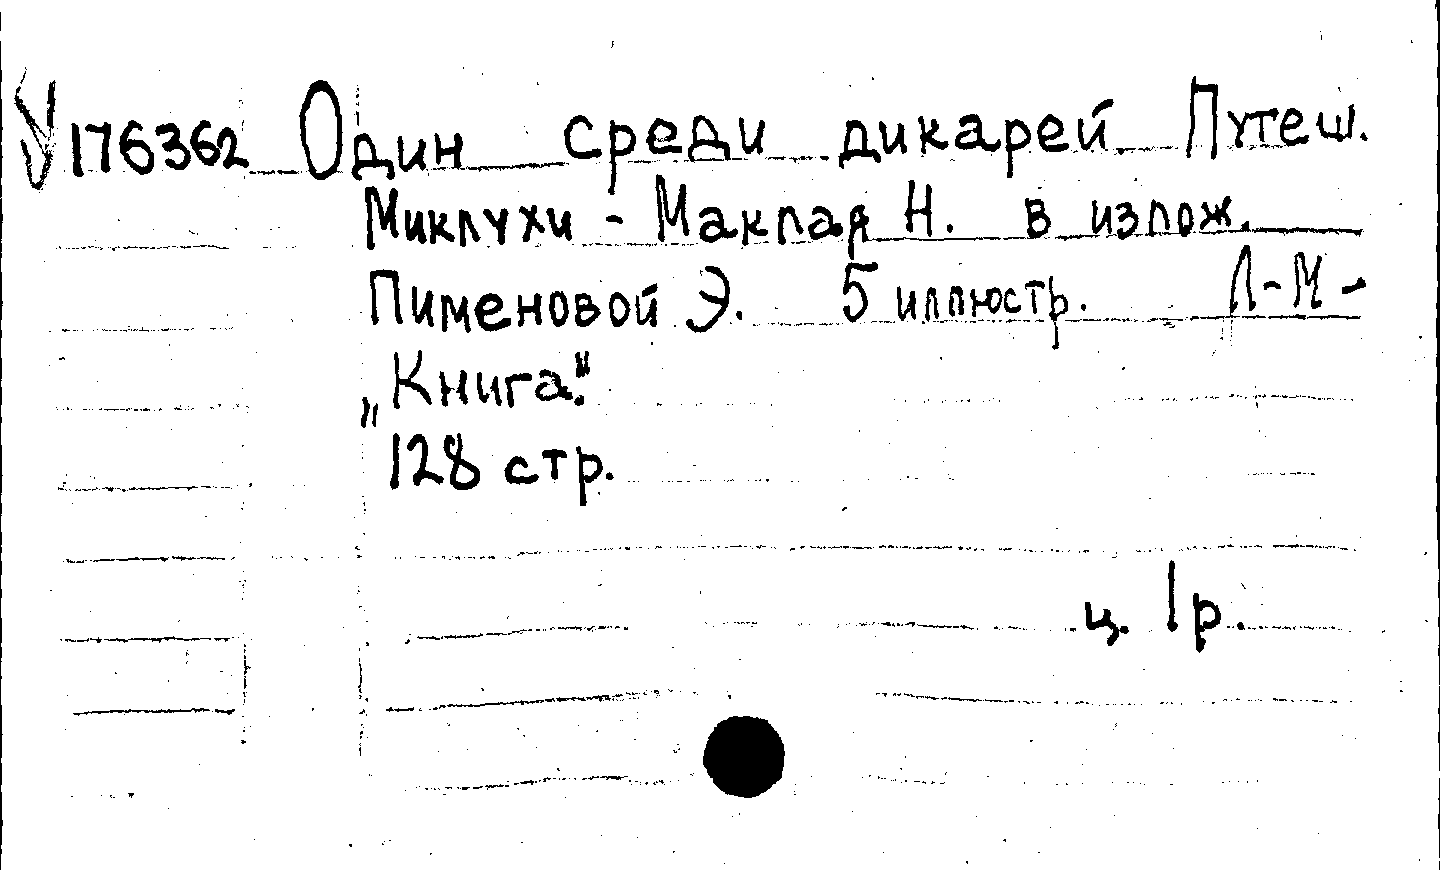 У176362 Один среди дикарей Путеш.
Миклухи-Маклая Н. в излож.
Пименовой Э. 5 иллюстр. Л-М-
„Книга."
128 стр.
ц. 1р.